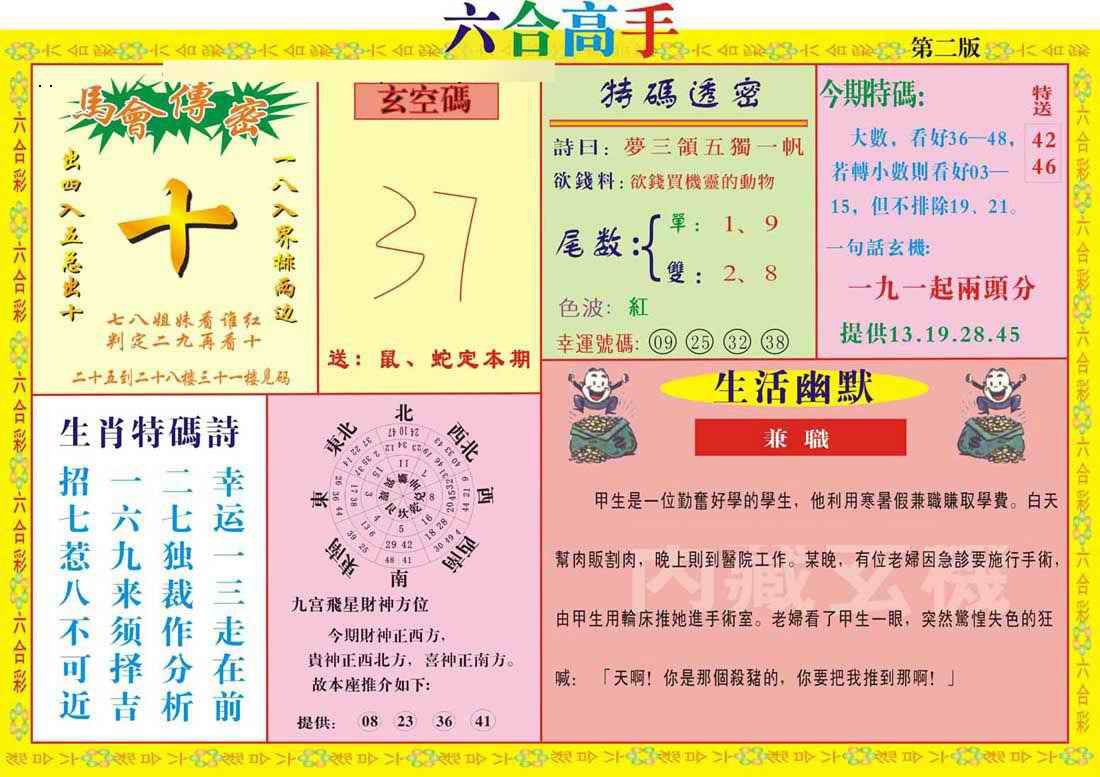 六合高手
第二版
馬會傳密
出四入五总出十
十
一八八界排两边
七八姐妹看谁红
判定二九再看十
二十五到二十八楼三十一楼见码
玄空碼
37
送：鼠、蛇定本期
特碼透密
詩曰：夢三領五獨一帆
欲錢料：欲錢買機靈的動物
尾数：
單：1、9
雙：2、8
色波：紅
幸運號碼：09 25 32 38
今期特碼:
特送
42
46
大數，看好36—48，
若轉小數則看好03—
15，但不排除19、21。
一句話玄機:
一九一起兩頭分
提供13.19.28.45
生肖特碼詩
幸运一三走在前
二七独裁作分析
一六九来须择吉
招七惹八不可近
北
西北
西
西南
南
東南
東
東北
九宫飛星財神方位
今期財神正西方，
貴神正西北方，喜神正南方。
故本座推介如下:
提供: 08 23 36 41
生活幽默
兼職
甲生是一位勤奮好學的學生，他利用寒暑假兼職賺取學費。白天
幫肉販割肉，晚上則到醫院工作。某晚，有位老婦因急診要施行手術，
由甲生用輪床推她進手術室。老婦看了甲生一眼，突然驚惶失色的狂
喊：「天啊！你是那個殺豬的，你要把我推到那啊！」
内藏玄機
六合彩